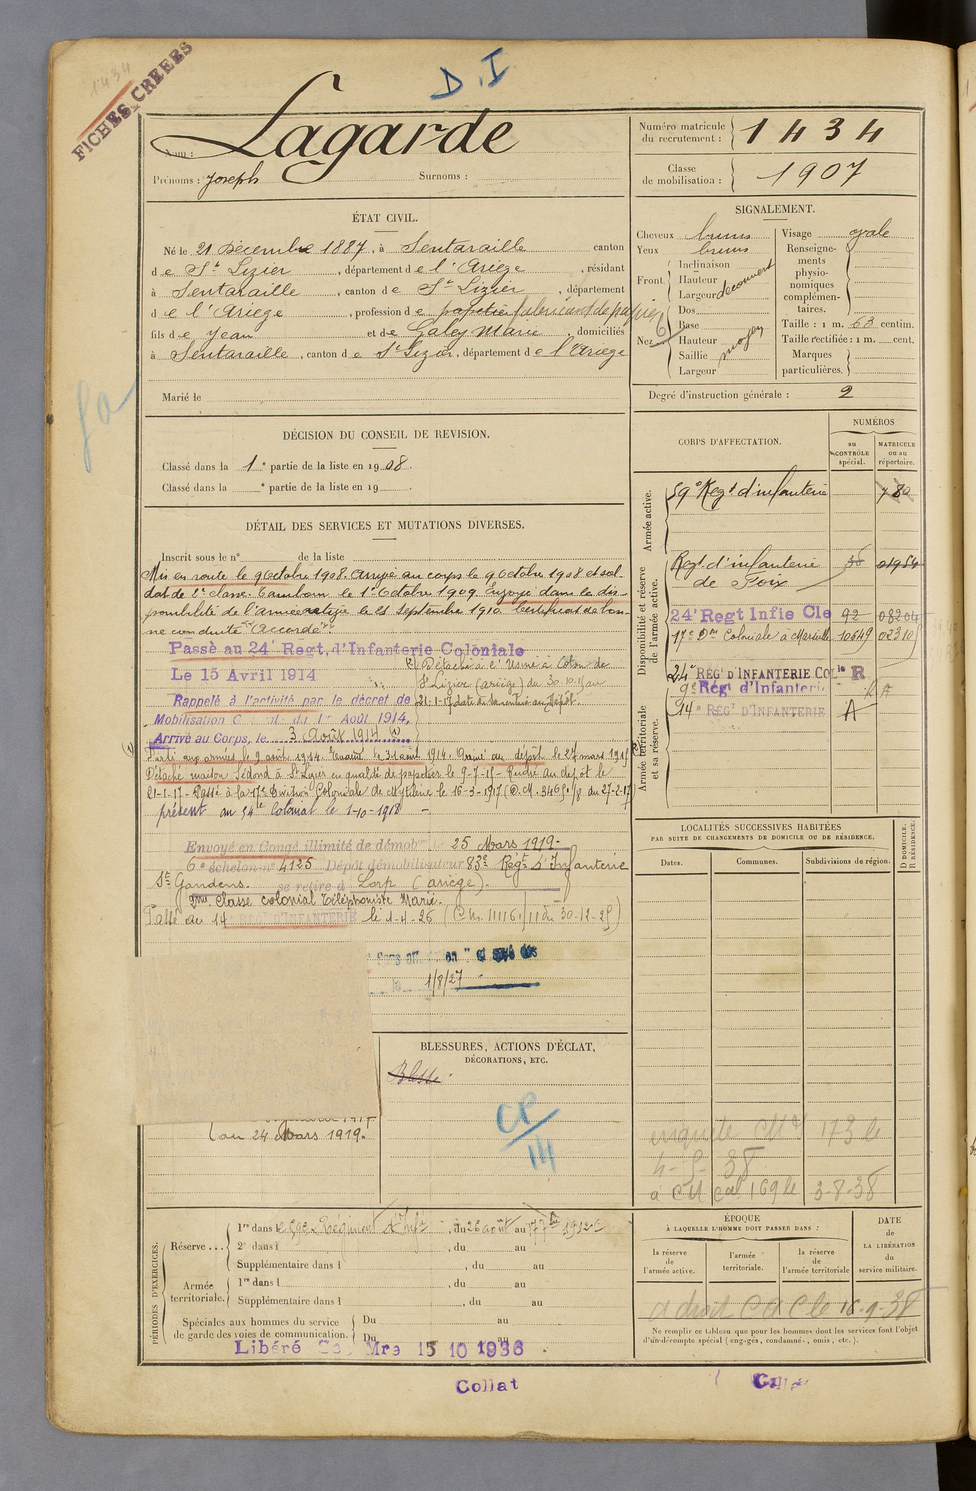 1434
FICHES CREEES
D.I
Nom : Lagarde
Prénoms : Joseph Surnoms :
Numéro matricule du recrutement : 1434
Classe de mobilisation : 1907
ÉTAT CIVIL.
Né le 21 Décembre 1887, à Sentaraille canton
de St Lizier, département de l'Ariège, résidant
à Sentaraille, canton de St Lizier, département
de l'Ariège, profession de papetier fabricant de papier
fils de Jean et de Galey Marie, domiciliés
à Sentaraille, canton de St Lizier, département de l'Ariège
Marié le
SIGNALEMENT.
Cheveux bruns
Yeux bruns
Front
Inclinaison
Hauteur
Largeur
découvert
Nez
Dos
Base
Hauteur
Saillie
Largeur
moyen
Visage ovale
Renseigne-
ments
physio-
nomiques
complémen-
taires.
Taille : 1 m. 63 centim.
Taille rectifiée : 1 m. cent.
Marques
particulières.
Degré d'instruction générale : 2
DÉCISION DU CONSEIL DE REVISION.
Classé dans la 1e partie de la liste en 1908.
Classé dans la e partie de la liste en 19
DÉTAIL DES SERVICES ET MUTATIONS DIVERSES.
Inscrit sous le n° de la liste
Mis en route le 9 Octobre 1908. Arrivé au corps le 9 Octobre 1908 et sol-
dat de 2e classe. Tambour le 1er Octobre 1909. Envoyé dans la dis-
ponibilité de l'armée active le 25 septembre 1910. Certificat de bon-
ne conduite "Accordé".
Passé au 24e Regt, d'Infanterie Coloniale
Le 15 Avril 1914
Détaché à l'Usine à Coton de
St Lizier (ariège) du 30-10-15 au
21-1-17 date de sa rentrée au Dépôt.
Rappelé à l'activité par le décret de
Mobilisation du 1er Août 1914,
Arrivé au Corps, le 3 Août 1914
Parti aux armées le 9 août 1914. Evacué le 31 août 1914. Rentré au dépôt le 27 mars 1915
Détaché maison Sédond à St Lizier en qualité de papetier le 9-7-15 - Rentré au dépôt le
21-1-17 - Passé à la 17e Division Coloniale de Mytilène le 16-3-1917 (D.M. 3465 /8 du 27-2-17)
présent au 54e Colonial le 1-10-1918 -
Envoyé en Congé illimité de démob 25 Mars 1919-
6e échelon n° 4125 Dépôt démobilisateur 83e Regt d'Infanterie
St Gaudens. se retire à Lorp (ariège).
2me Classe colonial Téléphoniste Marié.
Passé au 14 REGt D'INFANTERIE le 1-4-26 (C.M. 11116 /11 du 30-12-25)
le 1/8/27
au 24 Mars 1919.
BLESSURES, ACTIONS D'ÉCLAT,
DÉCORATIONS, ETC.
Blessé
CP/14
CORPS D'AFFECTATION.
NUMÉROS
au CONTRÔLE spécial.
MATRICULE ou au répertoire.
Armée active.
59e Regt d'infanterie 780
Disponibilité et réserve de l'armée active.
Regt d'infanterie 36 01954
de Foix
24e Regt Infie Cle 92 08204
17e Don Coloniale à Marseille 10649 02310
24e REGt D'INFANTERIE COLle R
9e Régt d'Infanterie
14e REGt D'INFANTERIE A
Armée territoriale et sa réserve.
LOCALITÉS SUCCESSIVES HABITÉES
PAR SUITE DE CHANGEMENTS DE DOMICILE OU DE RÉSIDENCE.
Dates. Communes. Subdivisions de région.
D DOMICILE. R RÉSIDENCE.
enquete CM 173 le
4-5-38
à CM Cal 169 le 3-8-38
PÉRIODES D'EXERCICES.
Réserve ...
1re dans le 59e Régiment d'Infie, du 26 août au 1912
2e dans l , du au
Supplémentaire dans l , du au
Armée territoriale.
1re dans l , du au
Supplémentaire dans l , du au
Spéciales aux hommes du service
de garde des voies de communication.
Du au
Du au
Libéré Mre 15 10 1936
ÉPOQUE
À LAQUELLE L'HOMME DOIT PASSER DANS :
la réserve de l'armée active.
l'armée territoriale.
la réserve de l'armée territoriale
DATE
de
LA LIBÉRATION
du
service militaire.
a droit C C le 16-9-38
Ne remplir ce tableau que pour les hommes dont les services font l'objet
d'un décompte spécial (engagés, condamnés, omis, etc.).
Collat